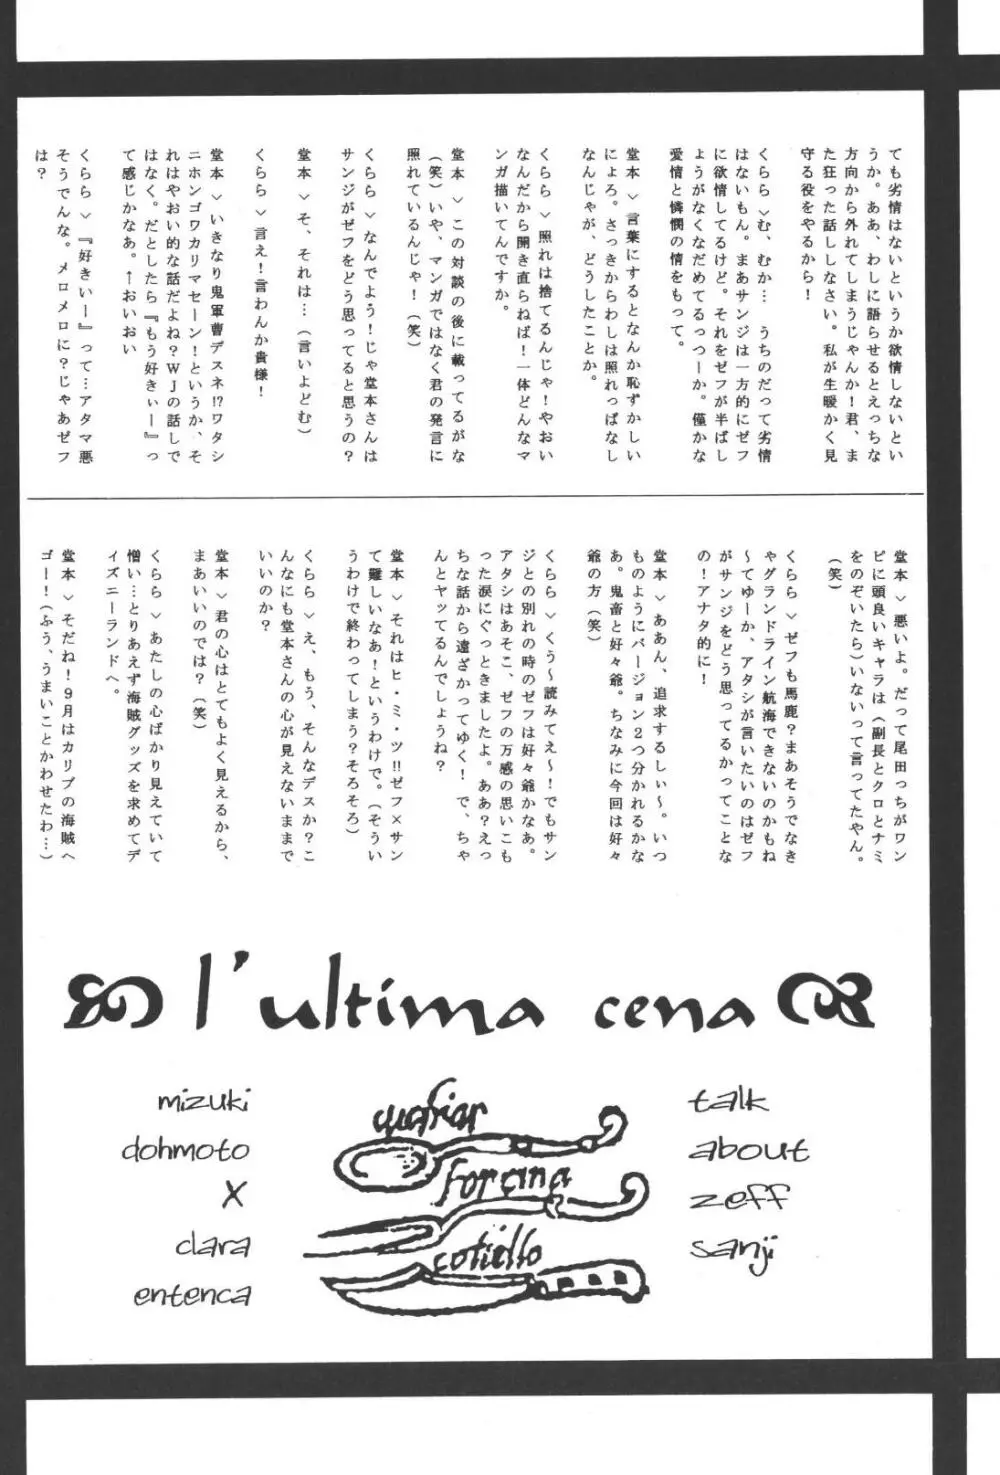 ても劣情はないというか欲情しないとい
うか。ああ、わしに語らせるとえっちな
方向から外れてしまうじゃんか！君、ま
た狂った話ししなさい。私が生暖かく見
守る役をやるから！
くらら＞む、むか… うちのだって劣情
はないもん。まあサンジは一方的にゼフ
に欲情してるけど。それをゼフが半ばし
ょうがなくなだめてるっつーか。僅かな
愛情と憐憫の情をもって。
堂本＞言葉にするとなんか恥ずかしい
によろ。さっきからわしは照れっぱなし
なんじゃが、どうしたことか。
くらら＞照れは捨てるんじゃ！やおい
なんだから開き直らねば！一体どんなマ
ンガ描いてんですか。
堂本＞この対談の後に載ってるがな
（笑）いや、マンガではなく君の発言に
照れているんじゃ！（笑）
くらら＞なんでよう！じゃ堂本さんは
サンジがゼフをどう思ってると思うの？
堂本＞そ、それは…（言いよどむ）
くらら＞言え！言わんか貴様！
堂本＞いきなり鬼軍曹デスネ!?ワタシ
ニホンゴワカリマセーン！というか、そ
れはやおい的な話だよね？WJの話しで
はなく。だとしたら『もう好きぃー』っ
て感じかなあ。↑おいおい
くらら＞『好きいー』って…アタマ悪
そうでんな。メロメロに？じゃあゼフ
は？
堂本＞悪いよ。だって尾田っちがワン
ピに頭良いキャラは（副長とクロとナミ
をのぞいたら）いないって言ってたやん。
（笑）
くらら＞ゼフも馬鹿？まあそうでなき
ゃグランドライン航海できないのかもね
～てゆーか、アタシが言いたいのはゼフ
がサンジをどう思ってるかってことな
の！アナタ的に！
堂本＞ああん、追求するしぃ～。いつ
ものようにバージョン2つ分かれるかな
あ。鬼畜と好々爺。ちなみに今回は好々
爺の方（笑）
くらら＞くう～読みてえ～！でもサン
ジとの別れの時のゼフは好々爺かなあ。
アタシはあそこ、ゼフの万感の思いこも
った涙にぐっときましたよ。ああ？えっ
ちな話から遠ざかってゆく！で、ちゃ
んとヤッてるんでしょうね？
堂本＞それはヒ・ミ・ツ!!ゼフ×サン
て難しいなあ！というわけで。（そうい
うわけで終わってしまう？そろそろ）
くらら＞え、もう、そんなデスか？こ
んなにも堂本さんの心が見えないままで
いいのか？
堂本＞君の心はとてもよく見えるから、
まあいいのでは？（笑）
くらら＞あたしの心ばかり見えていて
憎い…とりあえず海賊グッズを求めてデ
ィズニーランドへ。
堂本＞そだね！9月はカリブの海賊へ
ゴー！（ふう、うまいことかわせたわ…）
l'ultima cena
mizuki
dohmoto
X
clara
entenca
forcina
coltello
talk
about
zeff
sanji